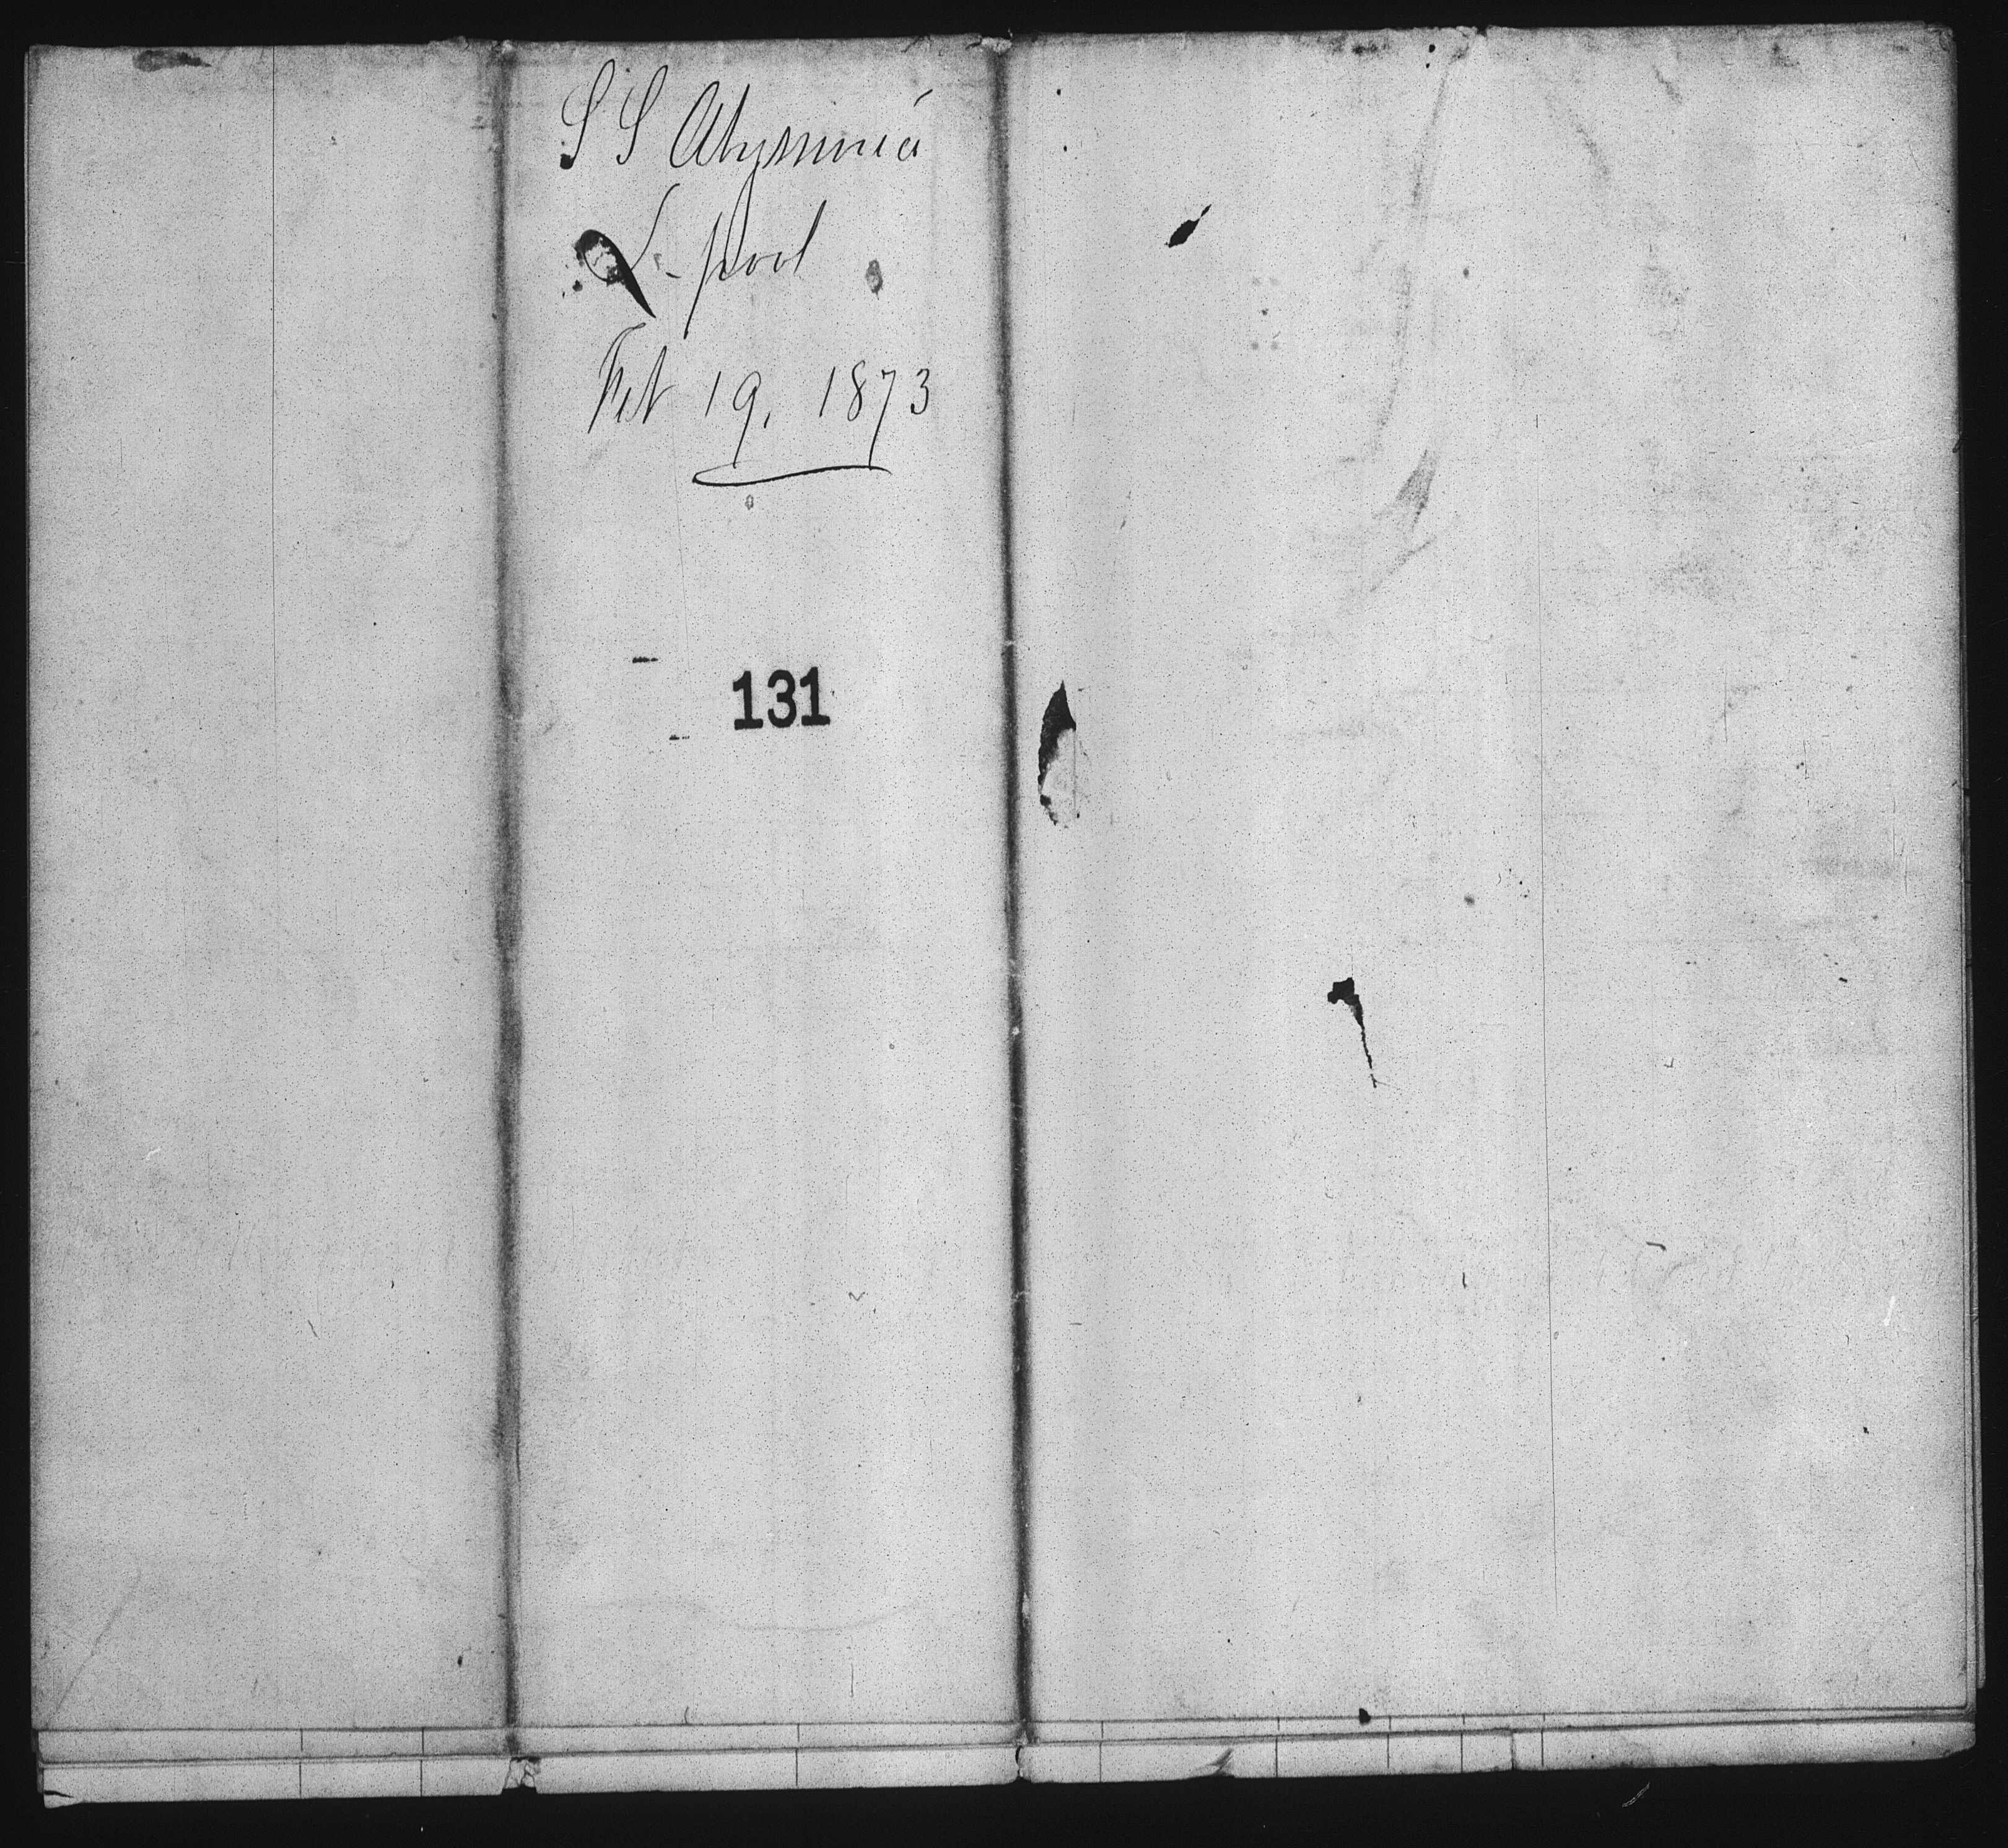 S S Abyssinia
L-pool
Feb 19, 1873
131